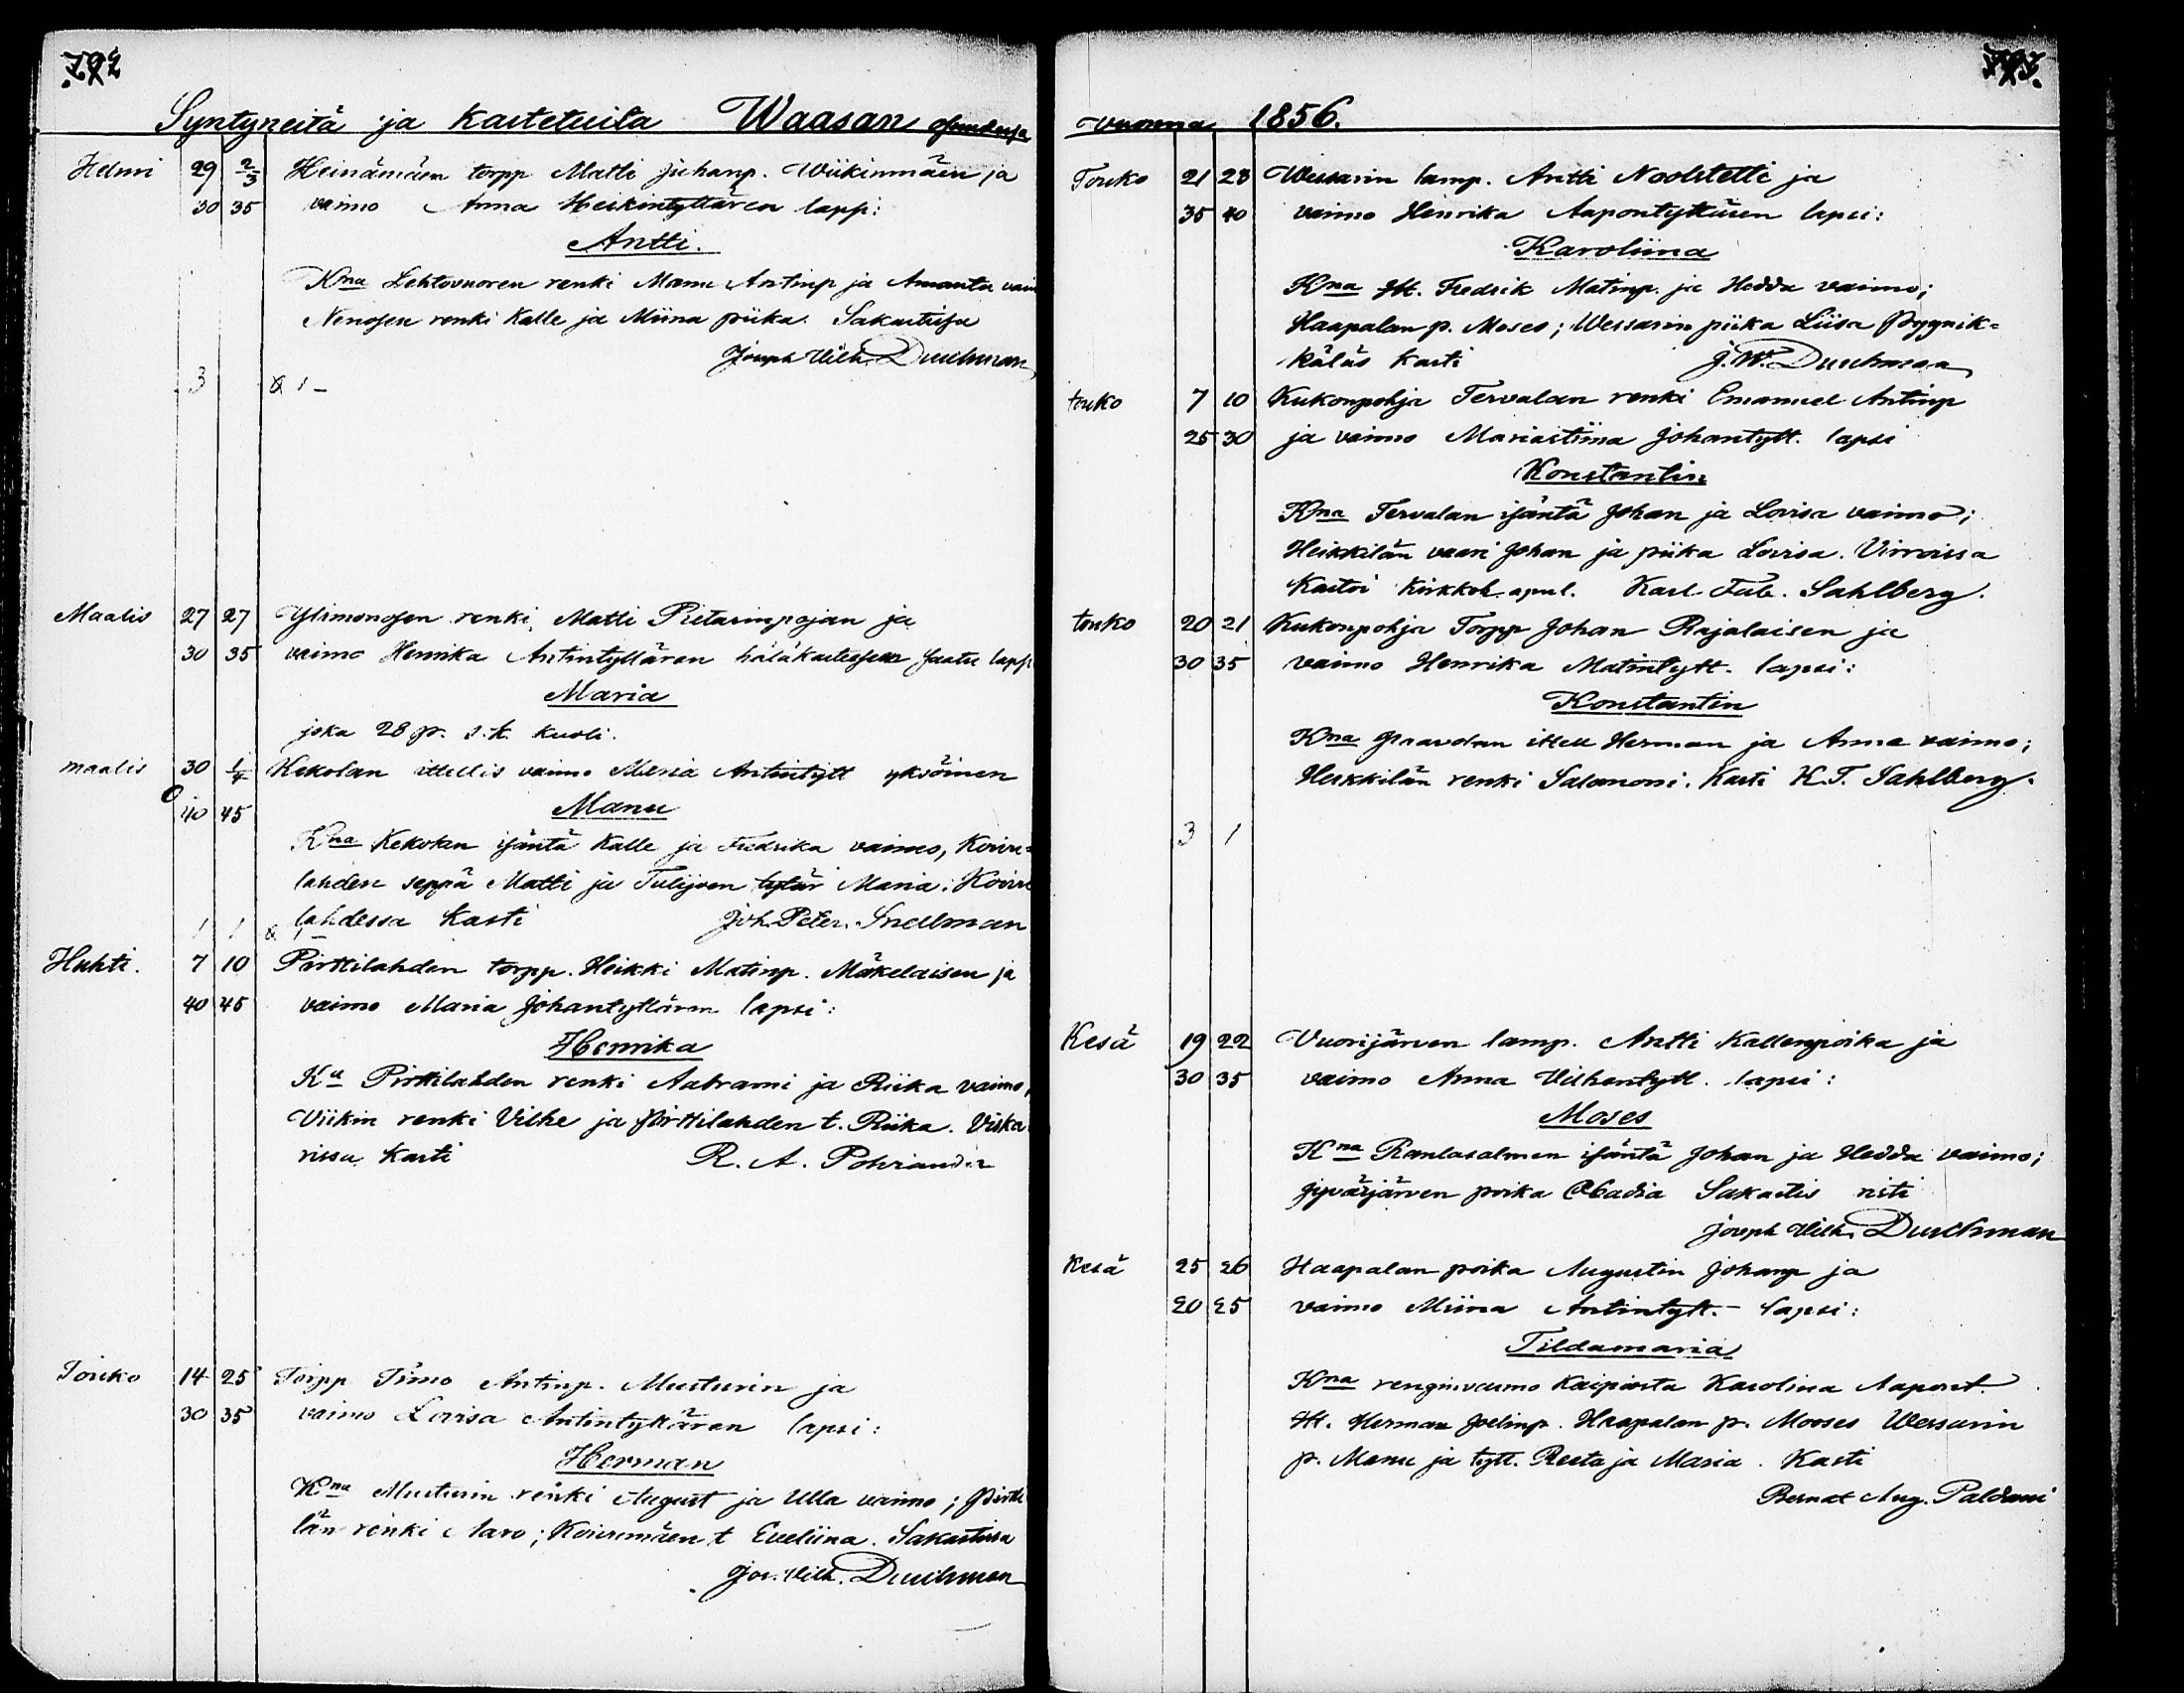 Syntyneitä ja kastetuita Waasan
Helmi 29 2/3 Heinämäen torpp Matti Juhanp. Wiikinmäen ja
30 35 vaimo Anna Heikintyttären laps:
Antti.
Kna Lehtovuoren renki Manu Antinp ja Amanta
renki Kalle ja Miina piika. Sakastissa
Joseph Vilh. Duchman
3 1
Maalis 27 27 Ylimonosen renki, Matti Pietarinpojan ja
30 35 vaimo Henrika Antintyttären hätäkasteosen
Maria
joka 28 p. s.k. kuoli.
maalis 30 1/4 Kekolan ittellis vaimo Maria Antintytt yksöinen
40 45 Manu
Kna Kekolan isäntä Kalle ja Fredrika vaimo, Koivu=
lahden seppä Matti ja Tulijoen tytär Maria. Koivu
1 1 lahdessa kasti Joh. Peter. Snellman
Huhti. 7 10 Pirttilahden torpp. Heikki Matinp. Mäkelaisen ja
40 45 vaimo Maria Johantyttären lapsi:
Henrika
Pirttilahden renki Aabrami ja Riika vaimo,
Viikin renki Vilhe ja Pirttilahden t. Riika. Viska
rissa kasti R. A.
Touko 14 25 Torpp Timo Antinp. Musturin ja
30 35 vaimo Lovisa Antintyttären lapsi:
Herman
Kna Musturin renki August ja Ulla vaimo; Pirtti
län renki Aaro; Koivumäen t Eveliina. Sakastissa
Jos. Vilh. Duchman
vuonna 1856.
Touko 21 28 Wessarin lamp. Antti ja
35 40 vaimo Henrika Aapontyttären lapsi:
Karoliina
Kna Itt. Fredrik Matinp. ja Hedda vaimo;
Haapalan p. Moses; Wessarin piika Liisa Pyynik=
käläs kasti J. W. Duchman
touko 7 10 Kukonpohja Tervalan renki Emanuel Antinp
25 30 ja vaimo Mariastiina Johantytt. lapsi
Konstantin
Kna Tervalan isäntä Johan ja Lovisa vaimo;
Heikkilän vaari Johan ja piika Lovisa. Virroissa
kastoi kirkkoh. apul. Karl Fab. Sahlberg.
touko 20 21 Kukonpohja Torpp Johan Rajalaisen ja
30 35 vaimo Henrika Matintytt. lapsi:
Konstantin
Kna ittell Herman ja Anna vaimo;
Heikkilän renki Salamoni. Kasti K.F. Sahlberg.
3 1
Kesä 19 22 Vuorijärven lamp. Antti Kallenpoika ja
30 35 vaimo Anna Vilhontytt. lapsi:
Moses
Kna Rantasalmen isäntä Johan ja Hedda vaimo;
Jyväsjärven poika Obadia Sakastis risti
Joseph Vilh. Duchman
Kesä 25 26 Haapalan poika Augustin Johanp ja
20 25 vaimo Miina Antintytt. - lapsi:
Tildamaria
Kna renginvaimo Kaiposta Karolina Aapont.
Itt. Herman Joelinp. Haapalan p. Mooses Wessarin
p. Manu ja tytt. Reeta ja Maria. Kasti
Bernat Aug. Paldani